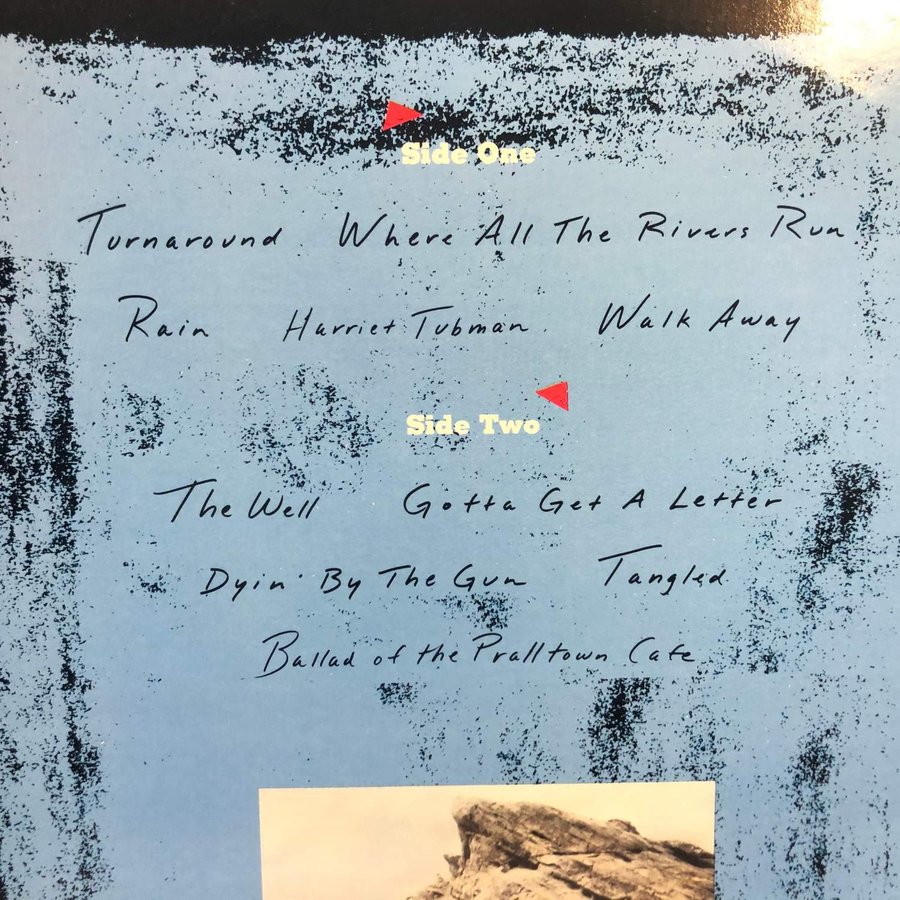 Side One
Turnaround Where All The Rivers Run
Rain Harriet Tubman Walk Away
Side Two
The Well Gotta Get A Letter
Dyin' By The Gun Tangled
Ballad of the Pralltown Cafe